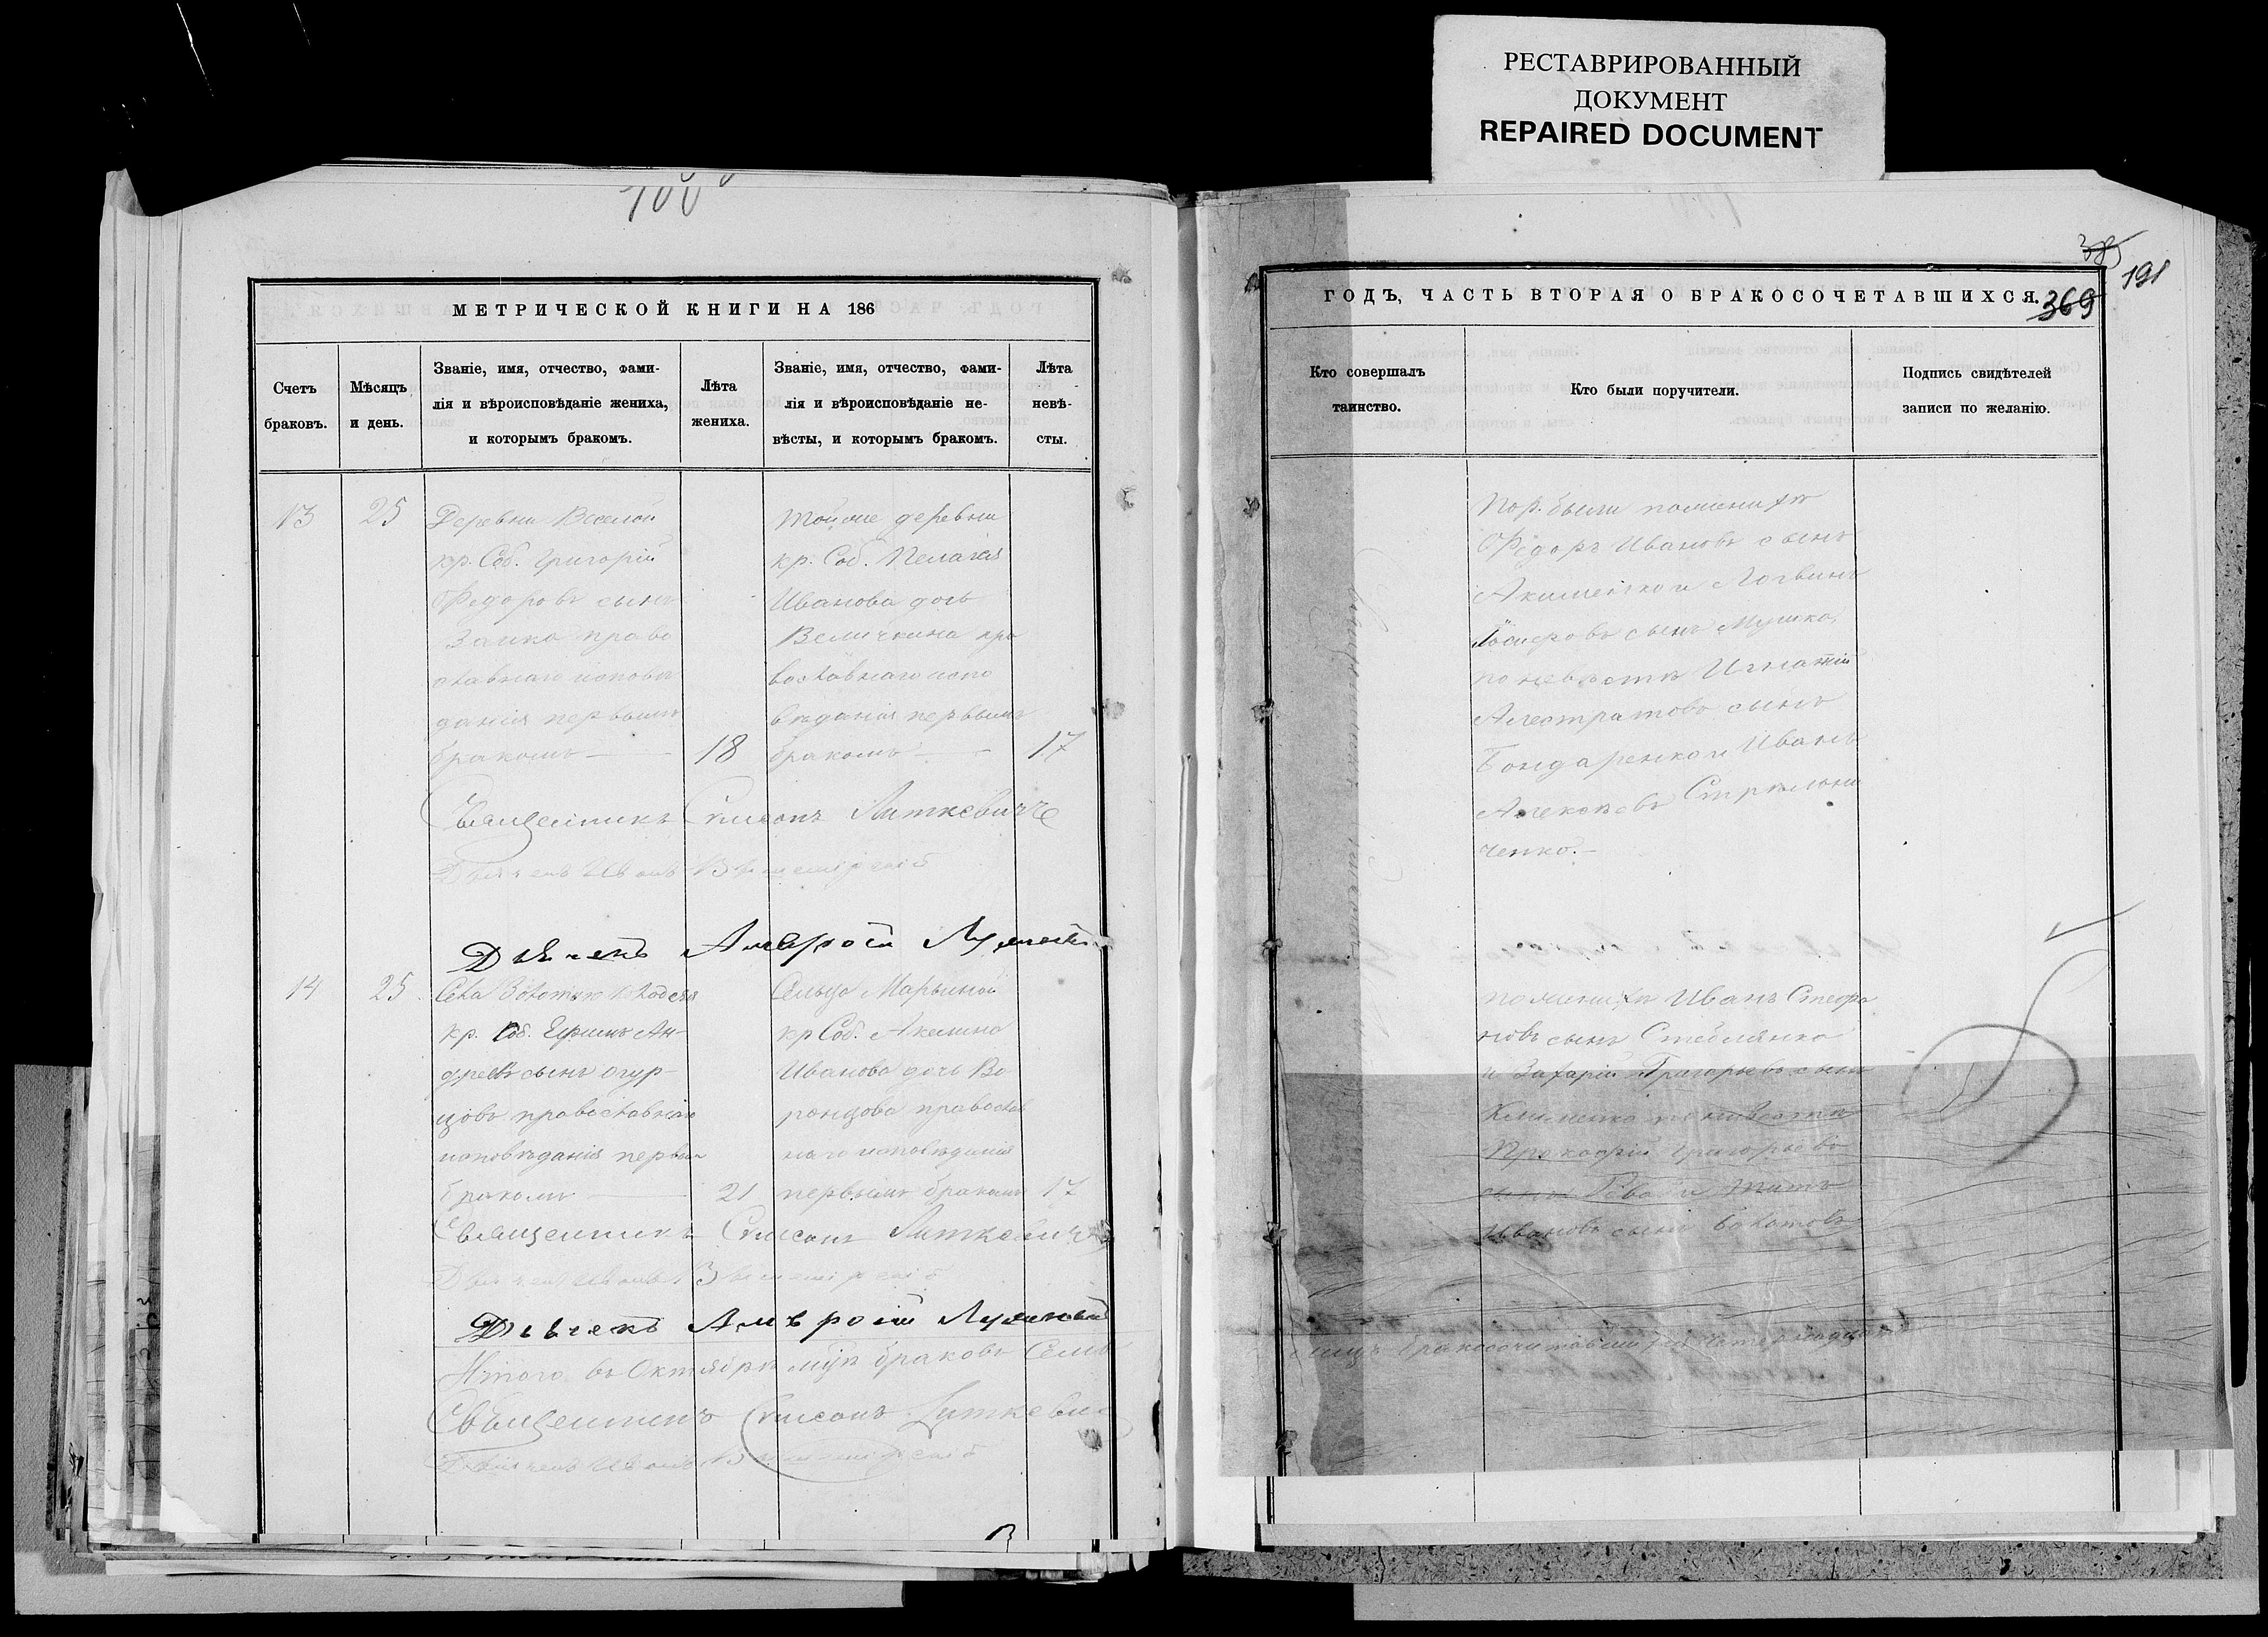 РЕСТАВРИРОВАННЫЙ
ДОКУМЕНТ
REPAIRED DOCUMENT
МЕТРИЧЕСКОЙ КНИГИ НА 186
Счетъ
браковъ.
Мѣсяцъ
и день.
Званіе, имя, отчество, фами-
лія и вѣроисповѣданіе жениха,
и которымъ бракомъ.
Лѣта
жениха.
Званіе, имя, отчество, фами-
лія и вѣроисповѣданіе не-
вѣсты, и которымъ бракомъ.
Лѣта
невѣ-
сты.
13
25
Деревни Веселой
кр. Соб. Григорій
Федоровъ сынъ
Заика право
славнаго исповѣ
данія первымъ
бракомъ —
18
Тойже деревни
кр. Соб. Пелагія
Иванова дочь
Величкина пра
вославнаго испо
вѣданія первымъ
бракомъ —
17
Священникъ Симеонъ Литкевичъ
Дьячекъ Иванъ
Дьячекъ Амвросій
14
25
кр. Соб. Ефимъ Ан-
дреевъ сынъ Огур-
цовъ православнаго
исповѣданія первым
бракомъ —
21
Сельца Марьиной
кр Соб. Акилина
Иванова дочь Во
ронцова православ
наго исповѣданія
первымъ бракомъ
17
Священникъ Симеонъ Литкевичъ
Дьячекъ Иванъ
Дьячекъ Амвросій
Итого въ Октябрѣ мцѣ браковъ Семь
Священникъ Симеонъ Литкевич
Дьячекъ Иванъ
385
191
369
ГОДЪ, ЧАСТЬ ВТОРАЯ О БРАКОСОЧЕТАВШИХСЯ.
Кто совершалъ
таинство.
Кто были поручители.
Подпись свидѣтелей
записи по желанію.
Пор. были по женихѣ
Федоръ Ивановъ сынъ
Акименко и Логвинъ
сынъ Мушка,
по невѣстѣ Игнатій
Алестратовъ сынъ
Бондаренко и Иванъ
Алексѣевъ Стрѣльни
ченко. —
по женихѣ Иванъ Стефа
новъ сынъ Стеблянко
и Захарій Григорьевъ сынъ
Клименко по невѣстѣ
Прокофій Григорьевъ
сынъ и Титъ
Ивановъ сынъ